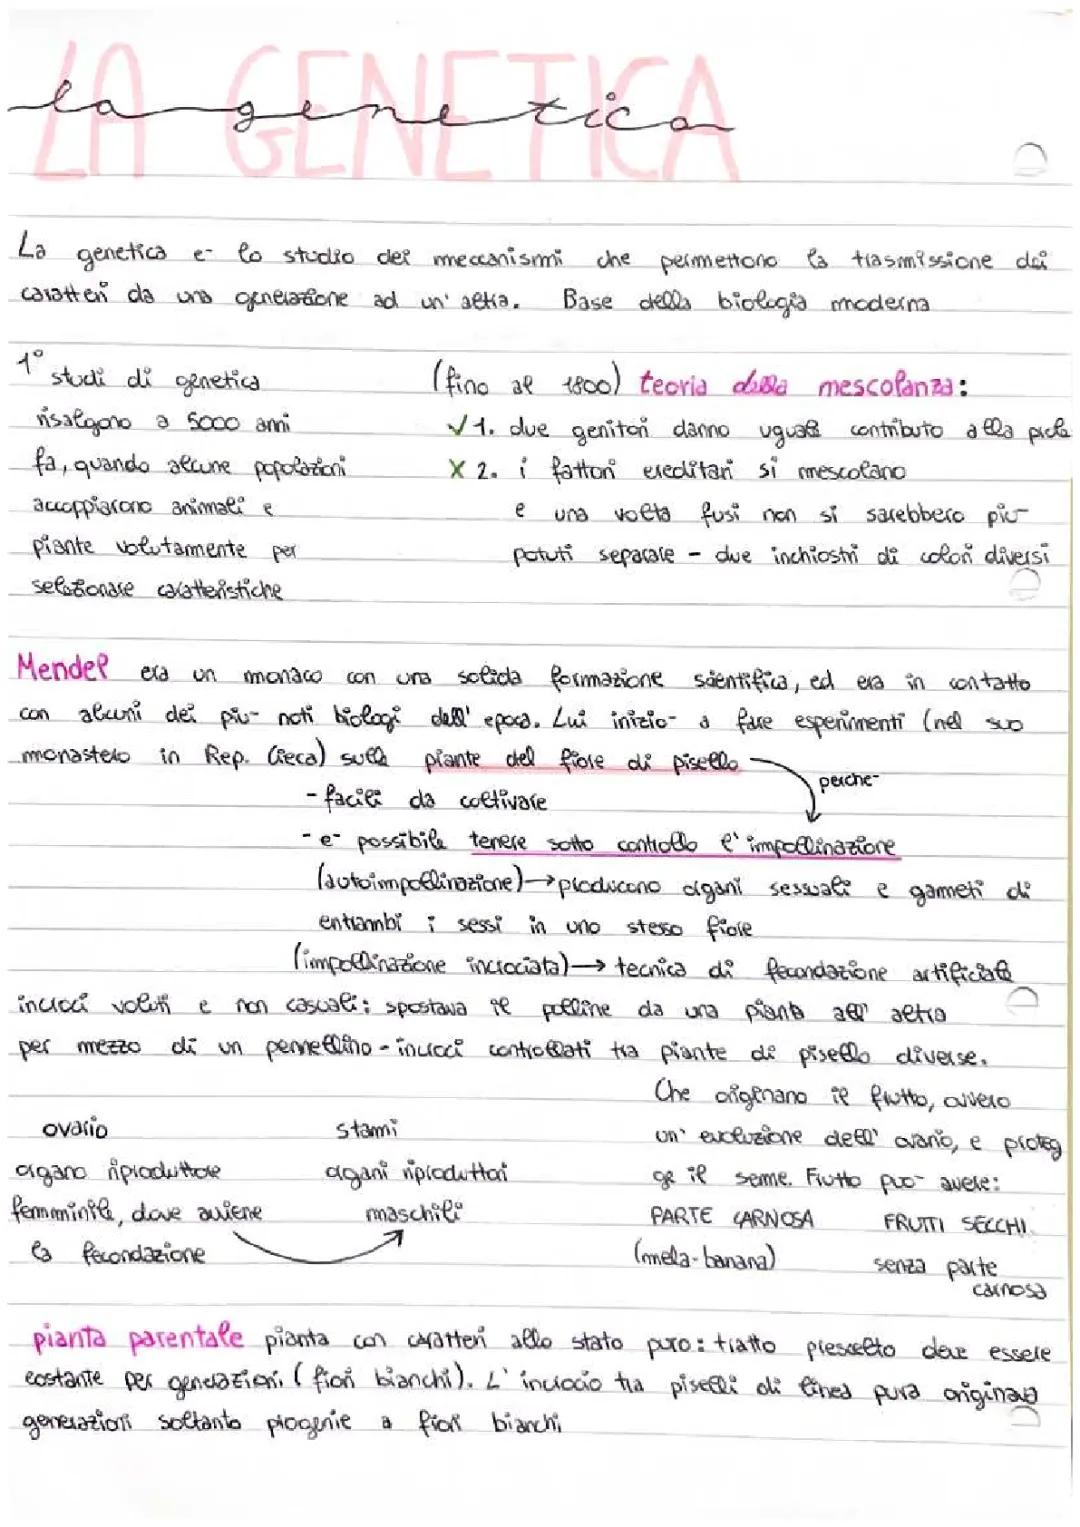 LA GENETICA
la genetica
La genetica e- lo studio dei meccanismi che permettono la trasmissione dei
caratteri da una generazione ad un' altra. Base della biologia moderna
1° studi di genetica
risalgono a 5000 anni
fa, quando alcune popolazioni
accoppiarono animali e
piante volutamente per
selezionare caratteristiche
(fino al 1800) teoria della mescolanza:
✓ 1. due genitori danno uguale contributo alla prole
X 2. i fattori ereditari si mescolano
e una volta fusi non si sarebbero piu-
potuti separare - due inchiostri di colori diversi
Mendel era un monaco con una solida formazione scientifica, ed era in contatto
con alcuni dei piu- noti biologi dell' epoca. Lui inizio- a fare esperimenti (nel suo
monastero in Rep. Ceca) sulle piante del fiore di pisello
perche-
- facili da coltivare
- e- possibile tenere sotto controllo l' impollinazione
(autoimpollinazione) → producono organi sessuali e gameti di
entrambi i sessi in uno stesso fiore
(impollinazione incrociata) → tecnica di fecondazione artificiale
incroci voluti e non casuali: spostava il polline da una pianta all' altra
per mezzo di un pennellino - incroci controllati tra piante di pisello diverse.
ovario
organo riproduttore
femminile, dove avviene
la fecondazione
stami
organi riproduttori
maschili
Che originano il frutto, ovvero
un' evoluzione dell' ovario, e proteg
ge il seme. Frutto puo- avere:
PARTE CARNOSA
(mela-banana)
FRUTTI SECCHI
senza parte
carnosa
pianta parentale pianta con caratteri allo stato puro: tratto prescelto deve essere
costante per generazioni. (fiori bianchi). L' incrocio tra piselli di linea pura originava
generazioni soltanto progenie a fiori bianchi